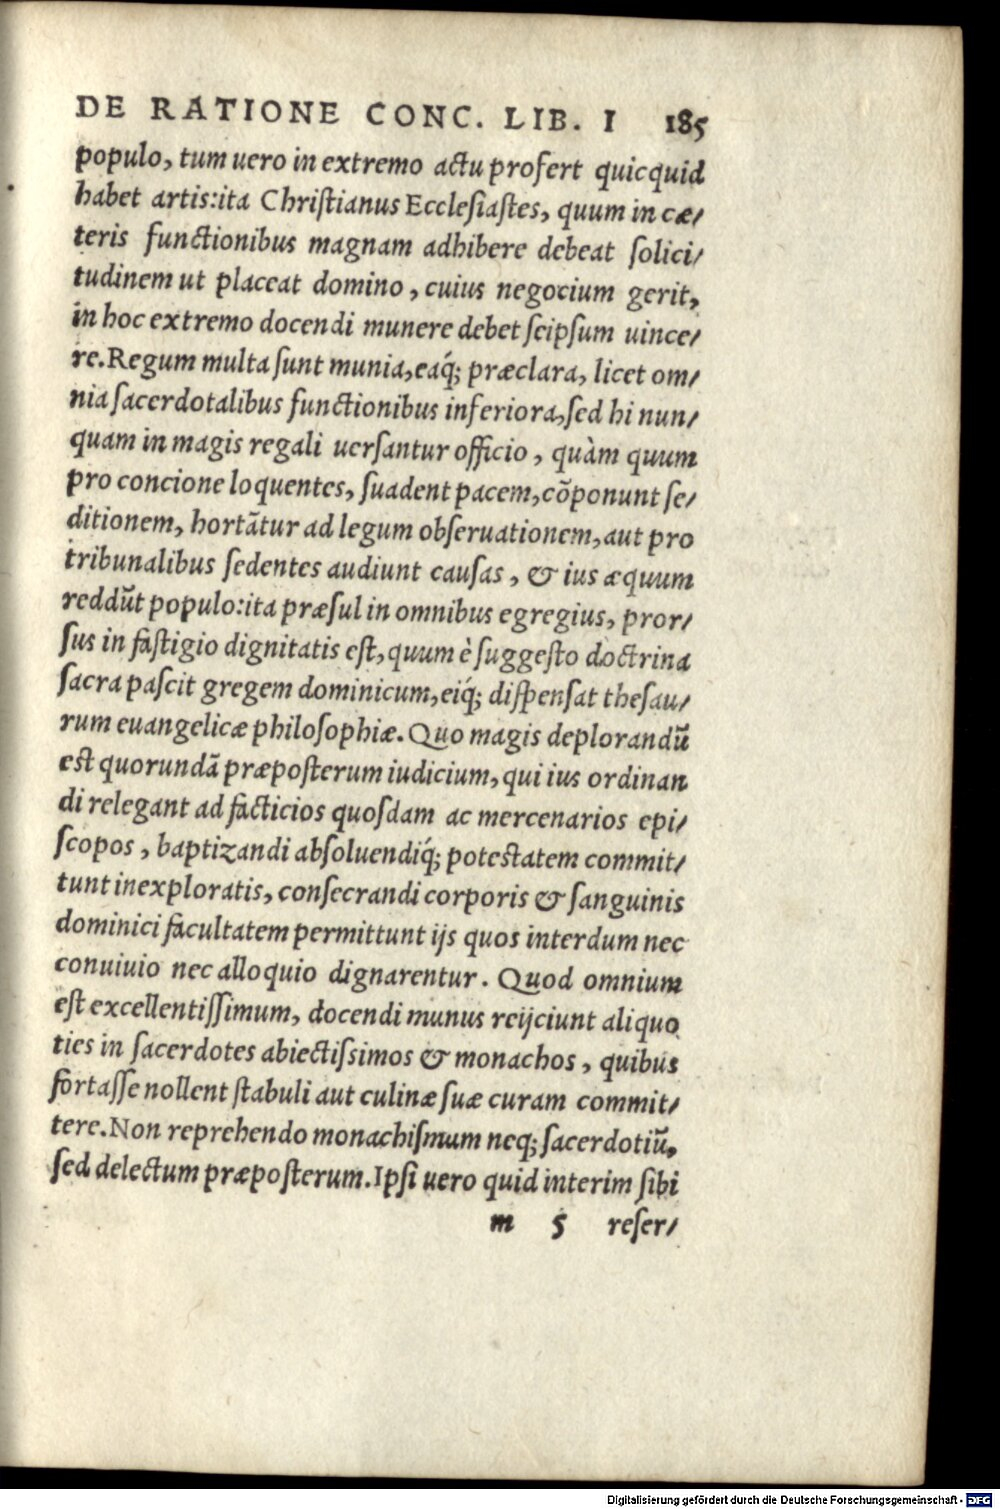 DE RATIONE CONC. LIB. I 185
populo, tum uero in extremo actu profert quicquid
habet artis:ita Christianus Ecclesiastes, quum in cæ/
teris functionibus magnam adhibere debeat solici/
tudinem ut placeat domino, cuius negocium gerit,
in hoc extremo docendi munere debet seipsum uince/
re. Regum multa sunt munia, eaq́; præclara, licet om/
nia sacerdotalibus functionibus inferiora, sed hi nun/
quam in magis regali uersantur officio, quàm quum
pro concione loquentes, suadent pacem, cõponunt se/
ditionem, hortãtur ad legum obseruationem, aut pro
tribunalibus sedentes audiunt causas, & ius æquum
reddũt populo:ita præsul in omnibus egregius, pror/
sus in fastigio dignitatis est, quum è suggesto doctrina
sacra pascit gregem dominicum, eiq́; dispensat thesau/
rum euangelicæ philosophiæ. Quo magis deplorandũ
est quorundã præposterum iudicium, qui ius ordinan
di relegant ad facticios quosdam ac mercenarios epi/
scopos, baptizandi absoluendiq́; potestatem commit/
tunt inexploratis, consecrandi corporis & sanguinis
dominici facultatem permittunt ijs quos interdum nec
conuiuio nec alloquio dignarentur. Quod omnium
est excellentissimum, docendi munus reijciunt aliquo
ties in sacerdotes abiectissimos & monachos, quibus
fortasse nollent stabuli aut culinæ suæ curam commit/
tere. Non reprehendo monachismum neq; sacerdotiũ,
sed delectum præposterum. Ipsi uero quid interim sibi
m 5 reser/
Digitalisierung gefördert durch die Deutsche Forschungsgemeinschaft - DFG